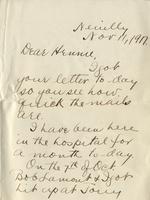 Neuilly
Nov 11, 1917.
Dear Hennie,
I got
your letter to-day
so you see how
quick the mails
are.
I have been
here in the hospital for
a month to-day
On the 7th of Oct
Bob Lamont & I got
hit up at